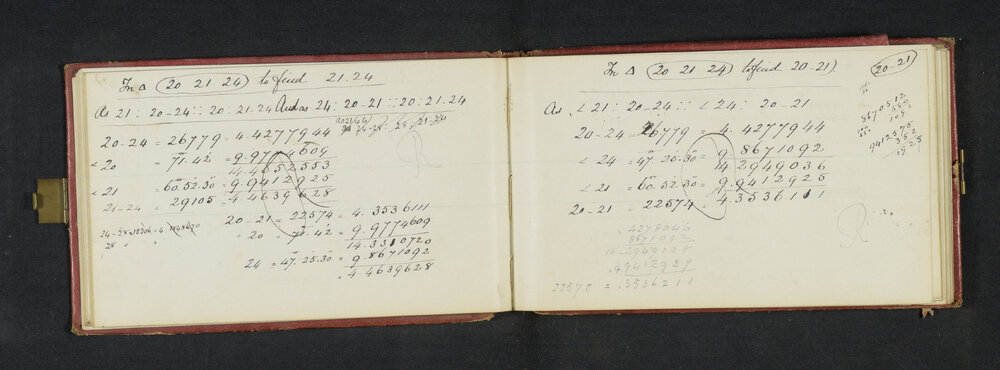 In Δ (20 21 24) to find 21.24
As 21 : 20-24 :: 20 : 21.24 And as 24 : 20-21 :: 20 : 21-24
20-24 = 26779 = 4.4277944
∠ 20 = 71.42 = 9.9774609
14.4052553
∠ 21 = 60.52.30 = 9.9412925
21-24 = 29105 = 4.4639628
20-21 = 22574 = 4.3536111
∠ 20 = 71.42 = 9.9774609
14.3310720
24 = 47.25.30 = 9.8671092
4.4639628
24-28 = 15306 = 4.1848620
28
In Δ (20 21 24) to find 20-21)
20-21
As ∠ 21 : 20-24 :: ∠ 24 : 20-21
20-24 = 26779 = 4.4277944
∠ 24 = 47.25.30 = 9.8671092
14.2949036
∠ 21 = 60.52.30 = 9.9412925
20-21 = 22574 = 4.3536111
8670512
9412575
352
.925
= 4278046
8671092
14.2949138
.9412927
22575 = .3536211